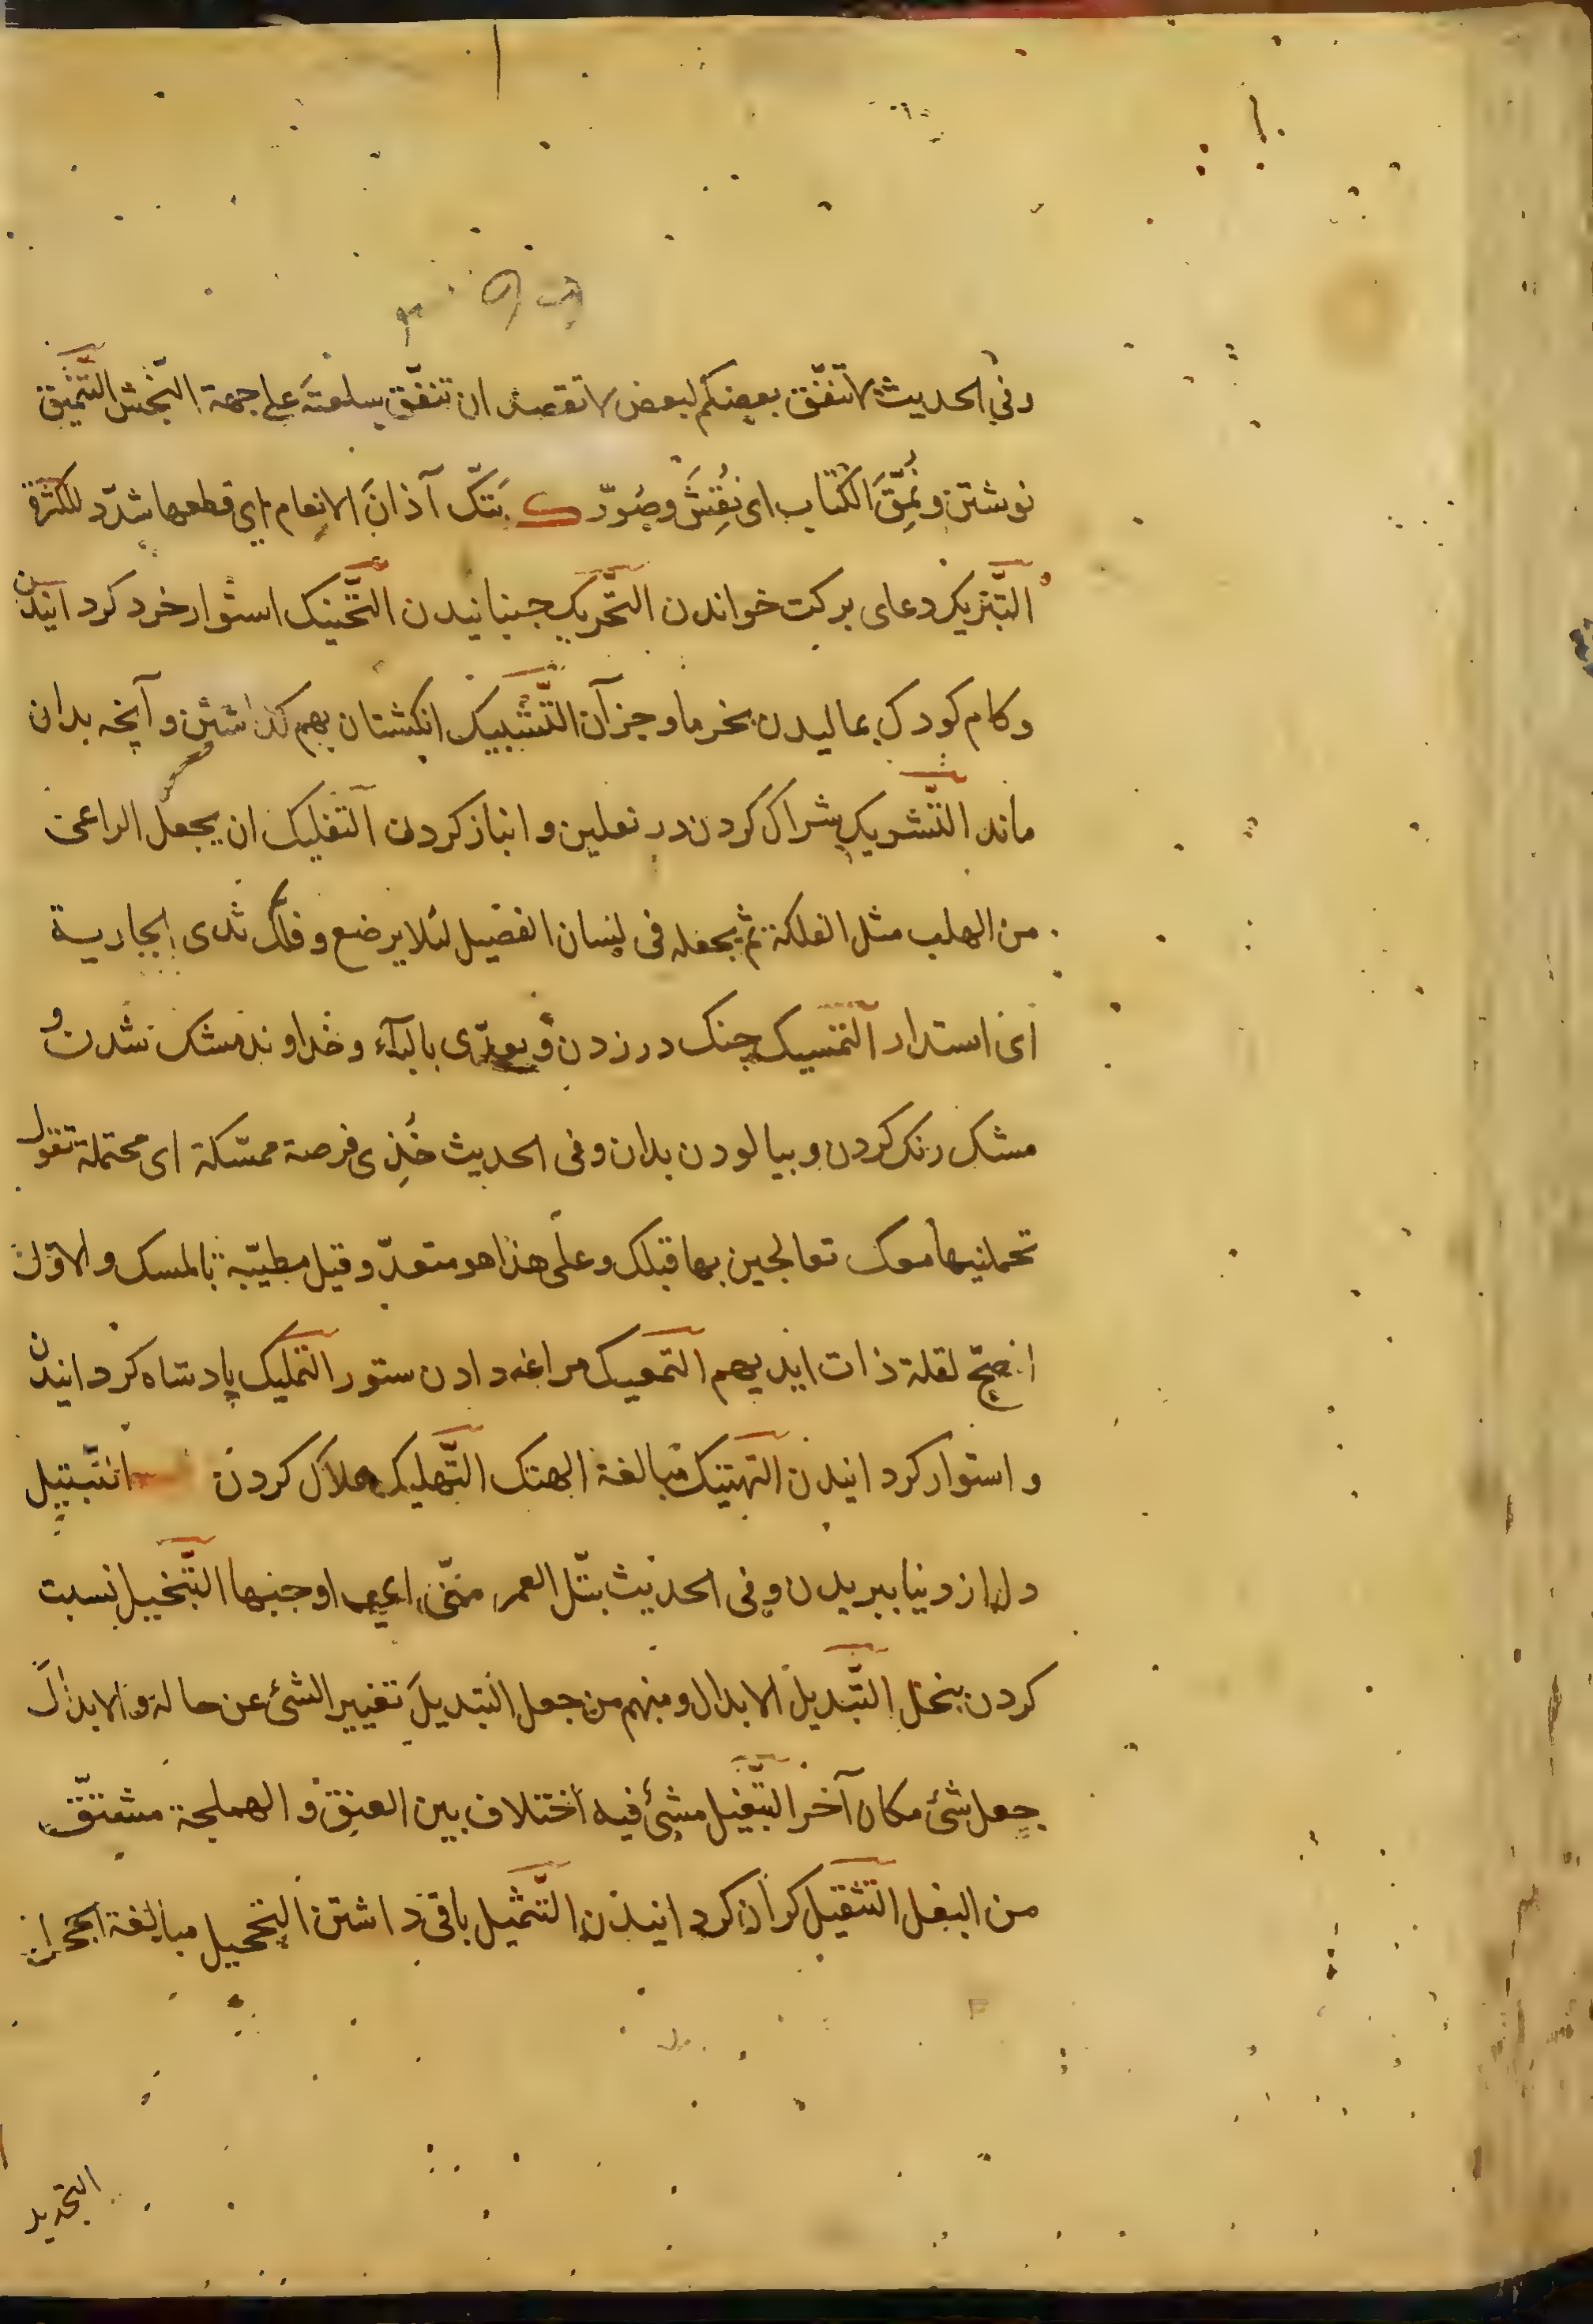 وفي الحديث لا تنفّق بعضكم لبعض لا تقصد ان تنفّق سلعته على جهة النّجش التَّنميق
نوشتن ونُمِّقَ الكتاب اى نُقِشَ وصُوّر ك بَتّك آذانَ الانعام اى قطعها شدّد للكثرة
التَّبريك دعاى بركت خواندن التَّحريك جنبانيدن التَّحنيك استوار خرد كردانيدن
وكام كودك بماليدن بخرما وجز آن التَّشبيك انكشتان بهم كذاشتن و آنچه بدان
ماند التَّشريك شراك كردن در نعلين و انباز كردن التفليك ان يجعل الراعى
من الهلب مثل الفلكة ثم يجعله فى لسان الفصيل لئلا يرضع و فلّك ثدى الجارية
اى استدار التمسيك چنك در زدن و يعدّى بالبآء و خداوند مشك شدن و
مشك رنك كردن و بيالودن بدان و فى الحديث خُذِى فرصة ممسّكة اى محتملة تقول
تحملينها معك تعالجين بها قبلك و على هذا هو متعدّ و قيل مطيّبة بالمسك و الاوّل
اصحّ لقلة ذات ايديهم التمعيك مراغه دادن ستور التمليك پادشاه كردانيدن
و استوار كردانيدن التهتيك مبالغة الهتك التَّهليك هلاك كردن التبتيل
دل از دنيا ببريدن و فى الحديث بتّل العمرى اى اوجبها التَّبخيل نسبت
كردن ببخل التَّبديل الابدال و منهم من جعل التبديلَ تغيير الشئ عن حاله و الابدالَ
جعل شئ مكان آخر التَّبغيل مشىٌ فيه اختلاف بين العنق و الهملجة مشتقّ
من البغل التَّثقيل كران كردانيدن التَّثميل باقى داشتن التحجيل مبالغة